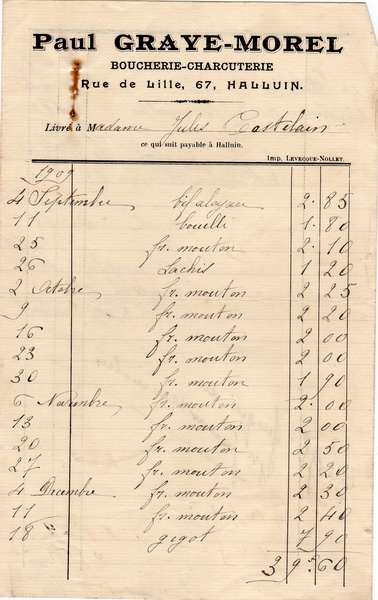 Paul GRAYE-MOREL
BOUCHERIE-CHARCUTERIE
Rue de Lille, 67, HALLUIN.
Livré à Madame Jules Castelain
ce qui suit payable à Halluin.
Imp. LEVECQUE-NOLLET.
1909
4 Septembre bif aloyau 2.85
11 bouilli 1.80
25 fr. mouton 2.10
26 hachis 1 20
2 Octobre fr. mouton 2 25
9 fr. mouton 2 20
16 fr. mouton 2 00
23 fr. mouton 2 00
30 fr. mouton 1 90
6 Novembre fr. mouton 2.00
13 fr. mouton 2 00
20 fr. mouton 2 50
27 fr. mouton 2 20
4 Decembre fr. mouton 2 30
11 fr. mouton 2 40
18 gigot 7 90
39.60